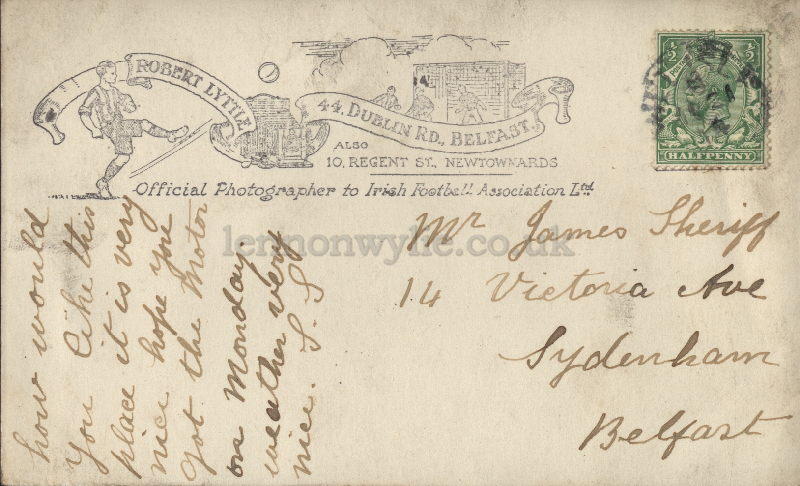 ROBERT LYTTLE
44, DUBLIN RD., BELFAST.
ALSO
10, REGENT ST., NEWTOWNARDS
Official Photographer to Irish Football Association Ltd.
½ ½
HALFPENNY
how would
you like this
place it is very
nice hope you
got the motor
on Monday.
weather very
nice. S. S
Mr James Sheriff
14 Victoria Ave
Sydenham
Belfast
lennonwylie.co.uk